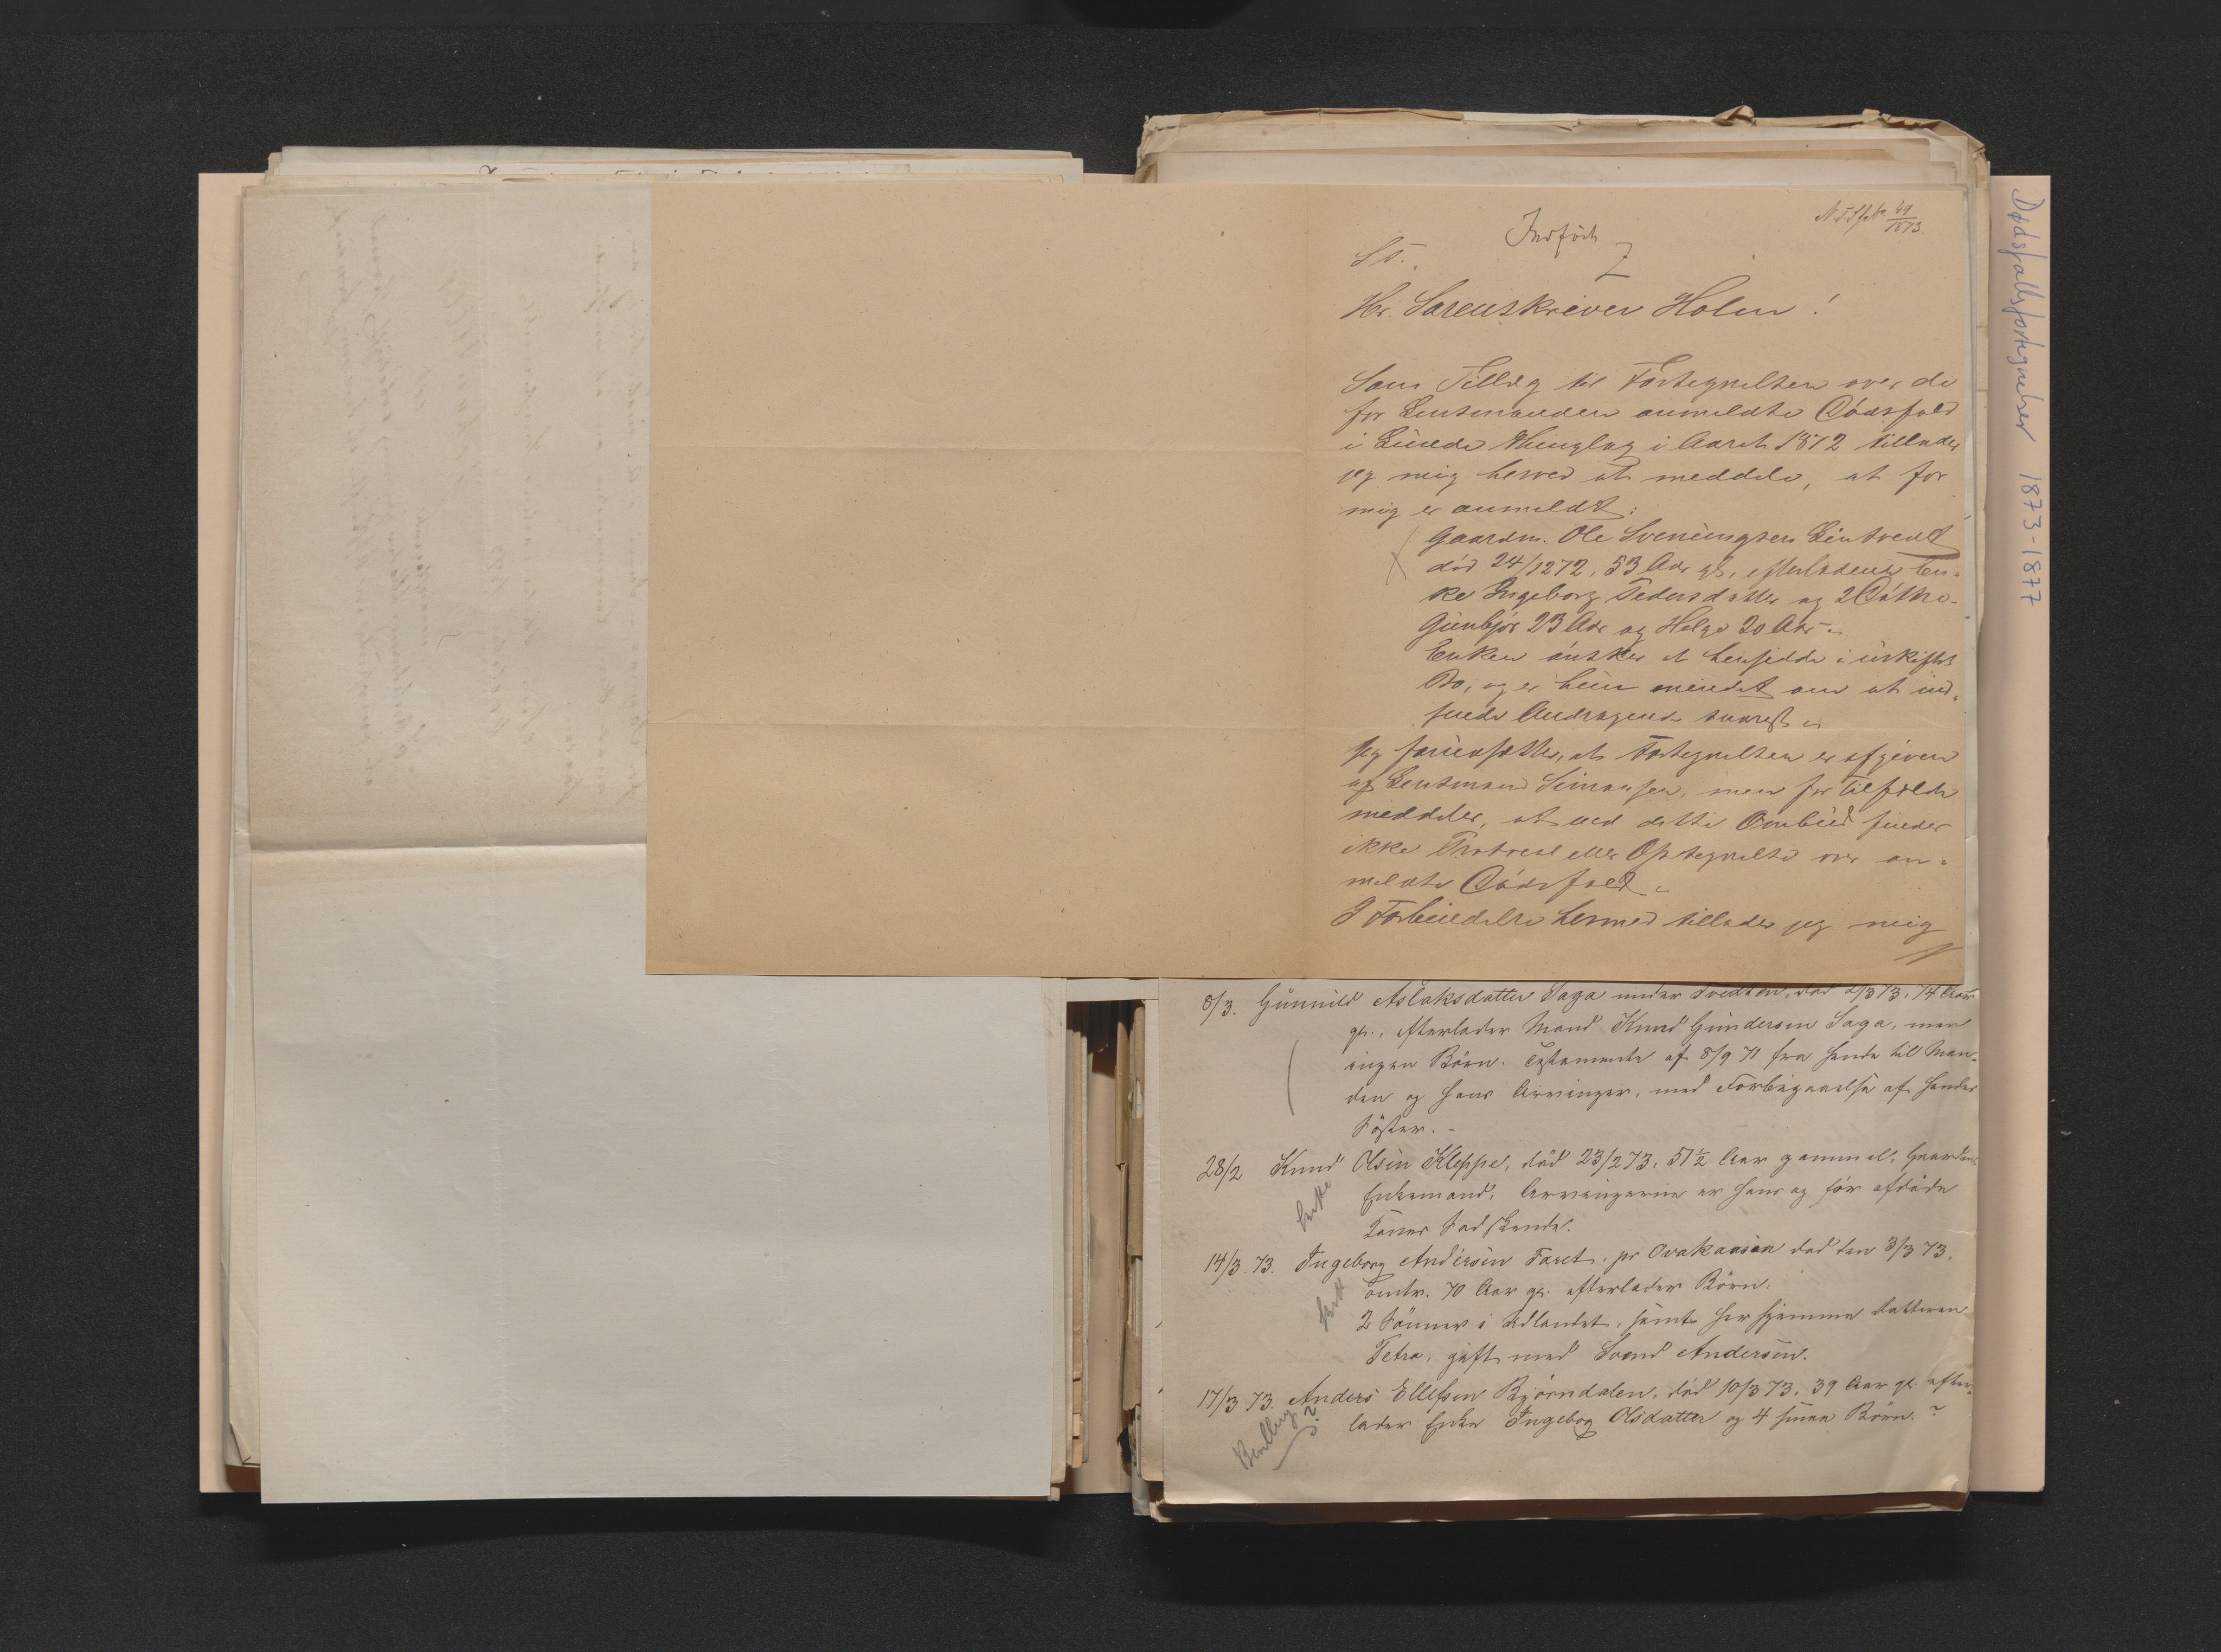 Indført
S. T.
Hr. Sorenskriver Holm!
Som Tillæg til Fortegnelsen over de
for Lensmanden anmeldte Dödsfald
i Lunde Thinglag i Aaret 1872 tillader
jeg mig herved at meddele, at for
mig er anmeldt:
Gaardm. Ole Sveinungsen Lintvedt
död 24/12 72, 53 Aar gl., efterladende En-
ke Ingeborg Pedersdatter og 2 Döttre.
Gunbjör 23 Aar og Helge 20 Aar.
Enken önsker at hensidde i uskiftet
Bo, og er hun mindet om at ind-
sende Andragende snarest.
Jeg forudsætter, at Fortegnelsen er afgiven
af Lensmand Simonsen, men for Tilfælde
meddeles, at ved dette Ombud findes
ikke Protocol eller Optegnelse over an-
meldte Dödsfald.
I Forbindelse hermed tillader jeg mig
8/3. Gunnild Aslaksdatter Saga under Tvedten, död 2/3 73, 74 Aar
gl., efterlader Mand Knud Gundersen Saga, men
ingen Börn. Testamente af 8/9 71 fra hende til Man-
den og hans Arvinger, med Forbigaaelse af hendes
Söster. -
28/2 Knud Olsen Kleppe, död 23/2 73, 51½ Aar gammel, Gaardm.
Enkemand. Arvingerne er hans og för afdöde
Kones Sødskende.
14/3. 73. Ingeborg Andersen Faret. pr Ovakaasen död den 3/3 73,
omtr. 70 Aar gl. efterlader Börn:
2 Sönner i Udlandet, samt her hjemme Datteren
Petra, gift med Svend Andersen.
17/3 73. Anders Ellefsen Björndalen, död 10/3 73, 39 Aar gl. efter-
lader Enke Ingeborg Olsdatter og 4 smaa Börn. ?
Dødsfallsfortegnelser 1873-1877